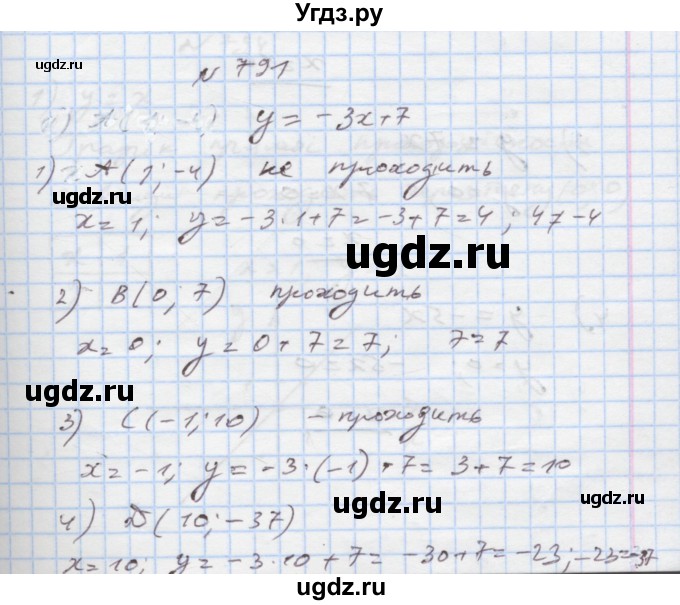 Угдз.ру
ugdz.ru
№ 791
y = -3x+7
1) A(1; -4) не проходить
ugdz.ru
x = 1; y = -3·1+7 = -3+7 = 4; 4≠-4
ugdz.ru
ugdz.ru
2) B(0; 7) проходить
x = 0; y = 0+7 = 7; 7=7
ugdz.ru
ugdz.ru
3) C(-1; 10) - проходить
x = -1; y = -3·(-1)+7 = 3+7 = 10
ugdz.ru
4) D(10; -37)
ugdz.ru
x = 10; y = -3·10+7 = -30+7 = -23; -23≠-37
ugdz.ru